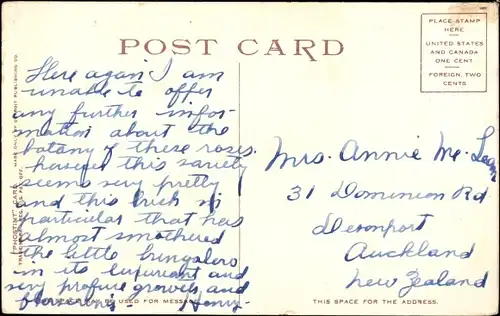 POST CARD
PLACE STAMP
HERE
UNITED STATES
AND CANADA
ONE CENT
FOREIGN, TWO
CENTS
Here again I am
unable to offer
any further infor-
mation about the
botany of these roses.
however this variety
seems very pretty
and this brick in
particular that has
almost smothered
the little bungalow
in its luxuriant and
very profuse growth and
Henry-
Mrs. Annie Mc. Lean
31 Dominion Rd
Devonport
Auckland
New Zealand
"PHOSTINT" CARD
MADE ONLY BY DETROIT PUBLISHING CO.
BE USED FOR MESSAGE
THIS SPACE FOR THE ADDRESS.